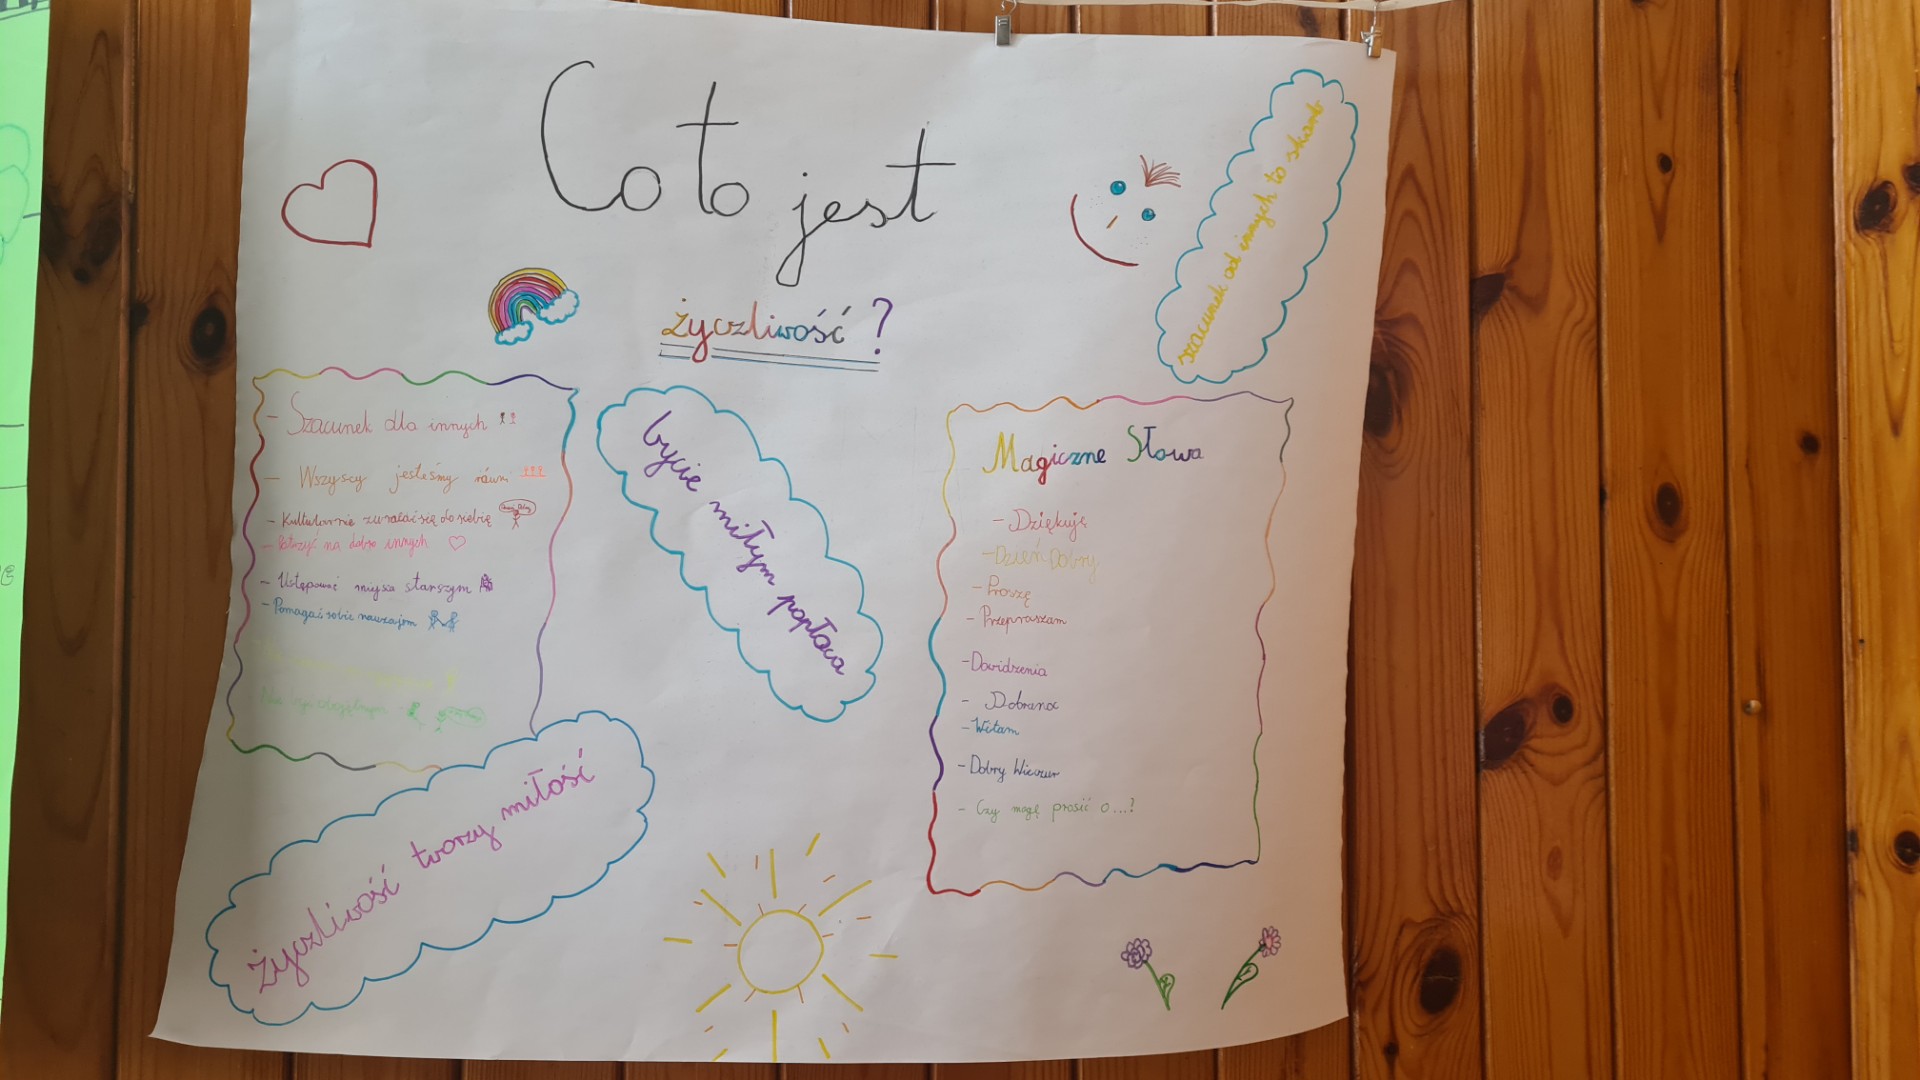 Co to jest
życzliwość?
szacunek od innych to skarb
- Szacunek dla innych
- Wszyscy jesteśmy równi
- Kulturalnie zwracać się do siebie
- Patrzyć na dobro innych
- Ustępować miejsa starszym
- Pomagać sobie nawzajem
bycie miłym popłaca
Magiczne Słowa
- Dziękuję
- Dzień Dobry
- Proszę
- Przepraszam
- Dowidzenia
- Dobranoc
- Witam
- Dobry Wieczur
- Czy mogę prosić o...?
życzliwość tworzy miłość